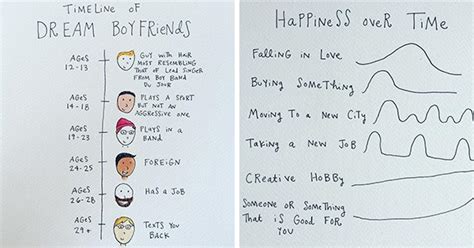 TIMELINE OF
DREAM BOYFRIENDS
AGES
12-13
GUY WITH HAIR
MOST RESEMBLING
THAT OF LEAD SINGER
FROM BOY BAND
DU JOUR
AGES
14-18
PLAYS A SPORT
BUT NOT AN
AGGRESSIVE ONE
AGES
19-23
PLAYS IN A
BAND
AGES
24-25
FOREIGN
AGES
26-28
HAS A JOB
AGES
29+
TEXTS YOU
BACK
HAPPINESS OVER TIME
FALLING IN LOVE
BUYING SOMETHING
MOVING TO A NEW CITY
TAKING A NEW JOB
CREATIVE HOBBY
SOMEONE OR SOMETHING
THAT IS GOOD FOR
YOU